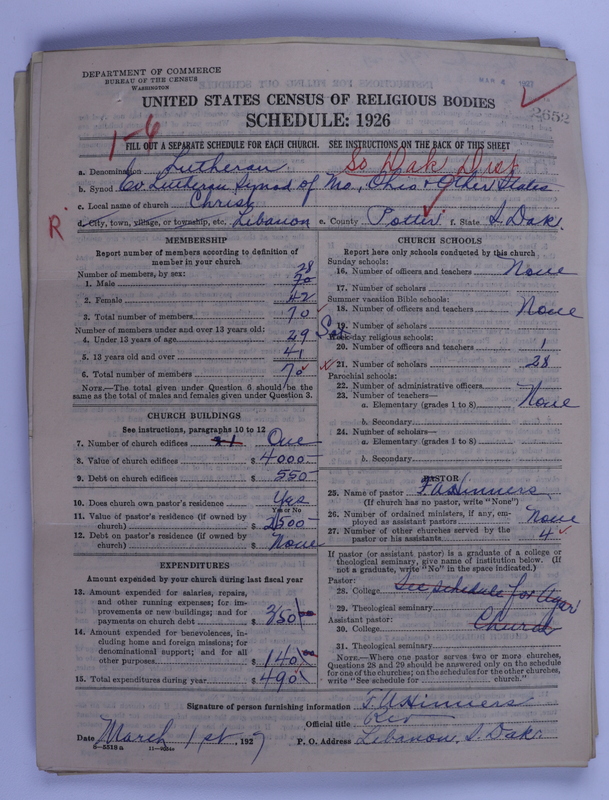 DEPARTMENT OF COMMERCE
BUREAU OF THE CENSUS
WASHINGTON
MAR 4 1927
UNITED STATES CENSUS OF RELIGIOUS BODIES
SCHEDULE: 1926
2652
1-6
FILL OUT A SEPARATE SCHEDULE FOR EACH CHURCH. SEE INSTRUCTIONS ON THE BACK OF THIS SHEET
So Dak Dist
a. Denomination Lutheran
b. Synod Ev Lutheran Synod of Mo, Ohio & Other States
c. Local name of church Christ
R
d. City, town, village, or township, etc. Lebanon e. County Potter f. State S. Dak.
MEMBERSHIP
Report number of members according to definition of member in your church
Number of members, by sex:
1. Male 28
2. Female 42
3. Total number of members 70
Number of members under and over 13 years old:
4. Under 13 years of age 29
5. 13 years old and over 41
6. Total number of members 70
NOTE.—The total given under Question 6 should be the same as the total of males and females given under Question 3.
CHURCH BUILDINGS
See instructions, paragraphs 10 to 12
7. Number of church edifices One
8. Value of church edifices $ 4000
9. Debt on church edifices $ 550
10. Does church own pastor's residence? Yes
Yes or No
11. Value of pastor's residence (if owned by church) $ 2500
12. Debt on pastor's residence (if owned by church) $ None
EXPENDITURES
Amount expended by your church during last fiscal year
13. Amount expended for salaries, repairs, and other running expenses; for improvements or new buildings; and for payments on church debt $ 350
14. Amount expended for benevolences, including home and foreign missions; for denominational support; and for all other purposes $ 140
15. Total expenditures during year $ 490
CHURCH SCHOOLS
Report here only schools conducted by this church
Sunday schools:
16. Number of officers and teachers None
17. Number of scholars
Summer vacation Bible schools:
18. Number of officers and teachers None
19. Number of scholars
Sat
Week-day religious schools:
20. Number of officers and teachers 1
21. Number of scholars 28
Parochial schools:
22. Number of administrative officers
23. Number of teachers— None
a. Elementary (grades 1 to 8)
b. Secondary
24. Number of scholars—
a. Elementary (grades 1 to 8)
b. Secondary
PASTOR
25. Name of pastor F A Hinners
(If church has no pastor, write "None")
26. Number of ordained ministers, if any, employed as assistant pastors None
27. Number of other churches served by the pastor or his assistants 4
If pastor (or assistant pastor) is a graduate of a college or theological seminary, give name of institution below. (If not a graduate, write "No" in the space indicated.)
Pastor:
28. College See schedule for Agar
29. Theological seminary
Assistant pastor:
30. College Church
31. Theological seminary
NOTE.—Where one pastor serves two or more churches, Questions 28 and 29 should be answered only on the schedule for one of the churches; on the schedules for the other churches, write "See schedule for ........ church."
Signature of person furnishing information F. A Hinners
Official title Rev
Date March 1st, 1927 P. O. Address Lebanon, S. Dak.